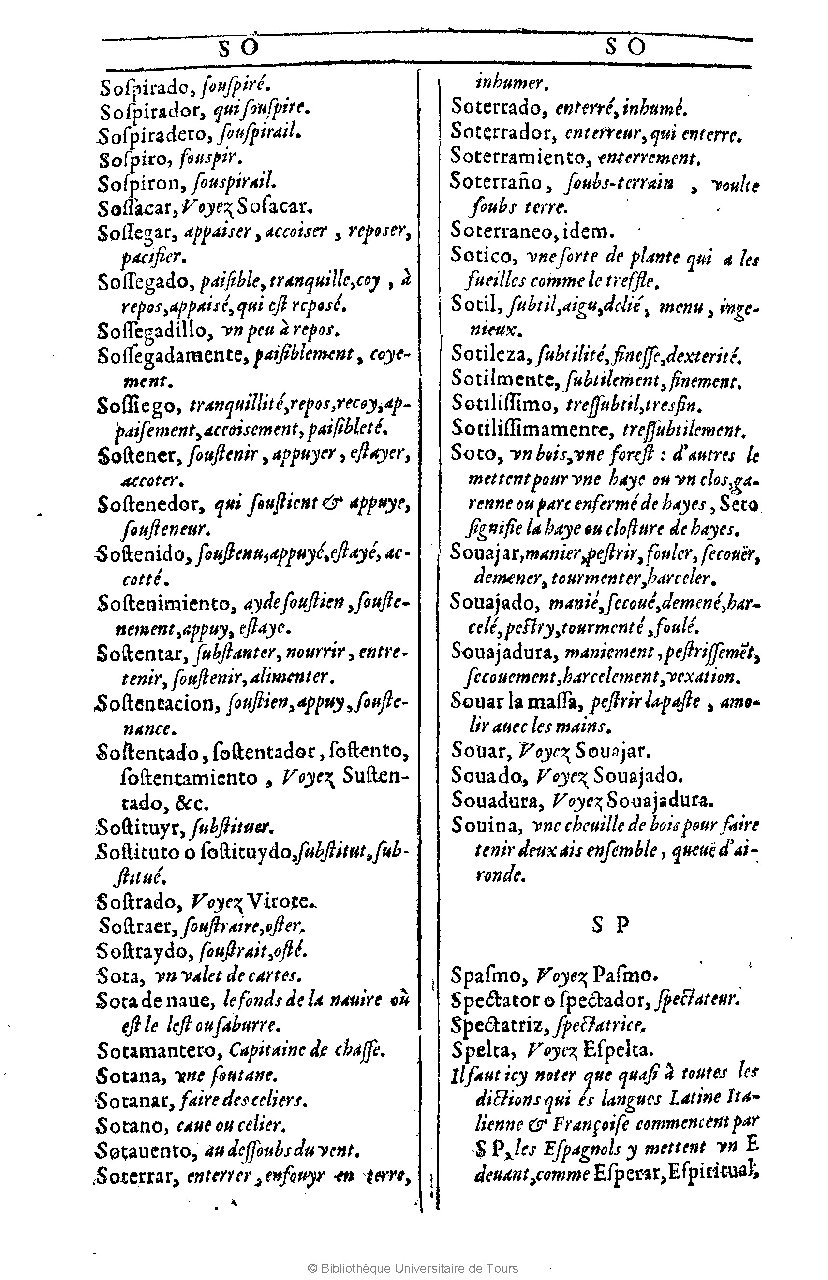 S O
Soſpirado, ſouſpiré.
Soſpirador, qui ſouſpire.
Soſpiradero, ſouſpirail.
Soſpiro, ſouspir.
Soſpiron, ſouspirail.
Soſſacar, Voyez Soſacar.
Soſſegar, appaiser, accoiser, reposer,
pacifier.
Soſſegado, paiſible, tranquille, coy, à
repos, appaisé, qui eſt reposé.
Soſſegadillo, vn peu à repos.
Soſſegadamente, paiſiblement, coye-
ment.
Soſſiego, tranquillité, repos, recoy, ap-
paiſement, accoisement, paiſibleté.
Soſtener, ſouſtenir, appuyer, eſtayer,
accoter.
Soſtenedor, qui ſouſtient & appuye,
ſouſteneur.
Soſtenido, ſouſtenu, appuyé, eſtayé, ac-
cotté.
Soſtenimiento, ayde ſouſtien, ſouſte-
nement, appuy, eſtaye.
Soſtentar, ſubſtanter, nourrir, entre-
tenir, ſouſtenir, alimenter.
Soſtentacion, ſouſtien, appuy, ſouſte-
nance.
Soſtentado, ſoſtentador, ſoſtento,
ſoſtentamiento, Voyez Suſten-
tado, &c.
Soſtituyr, ſubſtituer.
Soſtituto o ſoſtituydo, ſubſtitut, ſub-
ſtitué.
Soſtrado, Voyez Virote.
Soſtraer, ſouſtraire, oſter.
Soſtraydo, ſouſtrait, oſté.
Sota, vn valet de cartes.
Sota de naue, le fonds de la nauire où
eſt le leſt ou ſaburre.
Sotamantero, Capitaine de chaſſe.
Sotana, vne ſoutane.
Sotanar, faire des celiers.
Sotano, caue ou celier.
Sotauento, au deſſoubs du vent.
Soterrar, enterrer, enfouyr en terre,
S O
inhumer.
Soterrado, enterré, inhumé.
Soterrador, enterreur, qui enterre.
Soterramiento, enterrement.
Soterraño, ſoubs-terrain, voulte
ſoubs terre.
Soterraneo, idem.
Sotico, vne ſorte de plante qui a les
fueilles comme le treffle.
Sotil, ſubtil, aigu, delié, menu, inge-
nieux.
Sotileza, ſubtilité, fineſſe, dexterité.
Sotilmente, ſubtilement, finement.
Sotiliſſimo, treſſubtil, tresfin.
Sotiliſſimamente, treſſubtilement.
Soto, vn bois, vne foreſt : d'autres le
mettent pour vne haye ou vn clos, ga-
renne ou parc enfermé de hayes, Seto
ſignifie la haye ou cloſture de hayes.
Souajar, manier, peſtrir, fouler, ſecouër,
demener, tourmenter, harceler.
Souajado, manié, ſecoué, demené, har-
celé, peſtry, tourmenté, foulé.
Souajadura, maniement, peſtriſſemẽt,
ſecouement, harcelement, vexation.
Souar la maſſa, peſtrir la paſte, amo-
lir auec les mains.
Souar, Voyez Souajar.
Souado, Voyez Souajado.
Souadura, Voyez Souajadura.
Souina, vne cheuille de bois pour faire
tenir deux ais enſemble, queuë d'ai-
ronde.
S P
Spaſmo, Voyez Paſmo.
Spectator o ſpectador, ſpectateur.
Spectatriz, ſpectatrice.
Spelta, Voyez Eſpelta.
Il faut icy noter que quaſi à toutes les
dictions qui és langues Latine Ita-
lienne & Françoiſe commencent par
S P, les Eſpagnols y mettent vn E
deuant, comme Eſperar, Eſpiritual,
© Bibliothèque Universitaire de Tours